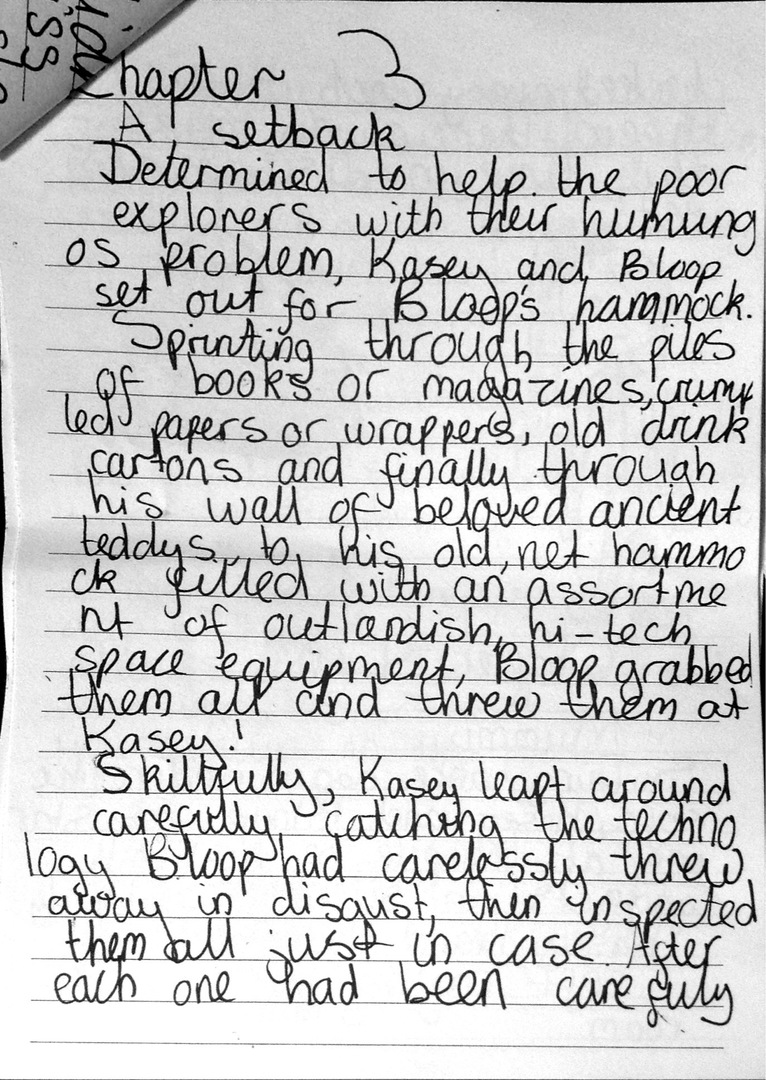 Chapter 3
A setback
Determined to help the poor
explorers with their humung
os problem, Kasey and Bloop
set out for Bloop's hammock.
Sprinting through the piles
of books or magazines, crump
led papers or wrappers, old drink
cartons and finally through
his wall of beloved ancient
teddys to his old, net hammo
ck filled with an assortme
nt of outlandish, hi-tech
space equipment, Bloop grabbed
them all and threw them at
Kasey!
Skillfully, Kasey leapt around
carefully catching the techno
logy Bloop had carelessly threw
away in disgust, then inspected
them all just in case. After
each one had been carefuly